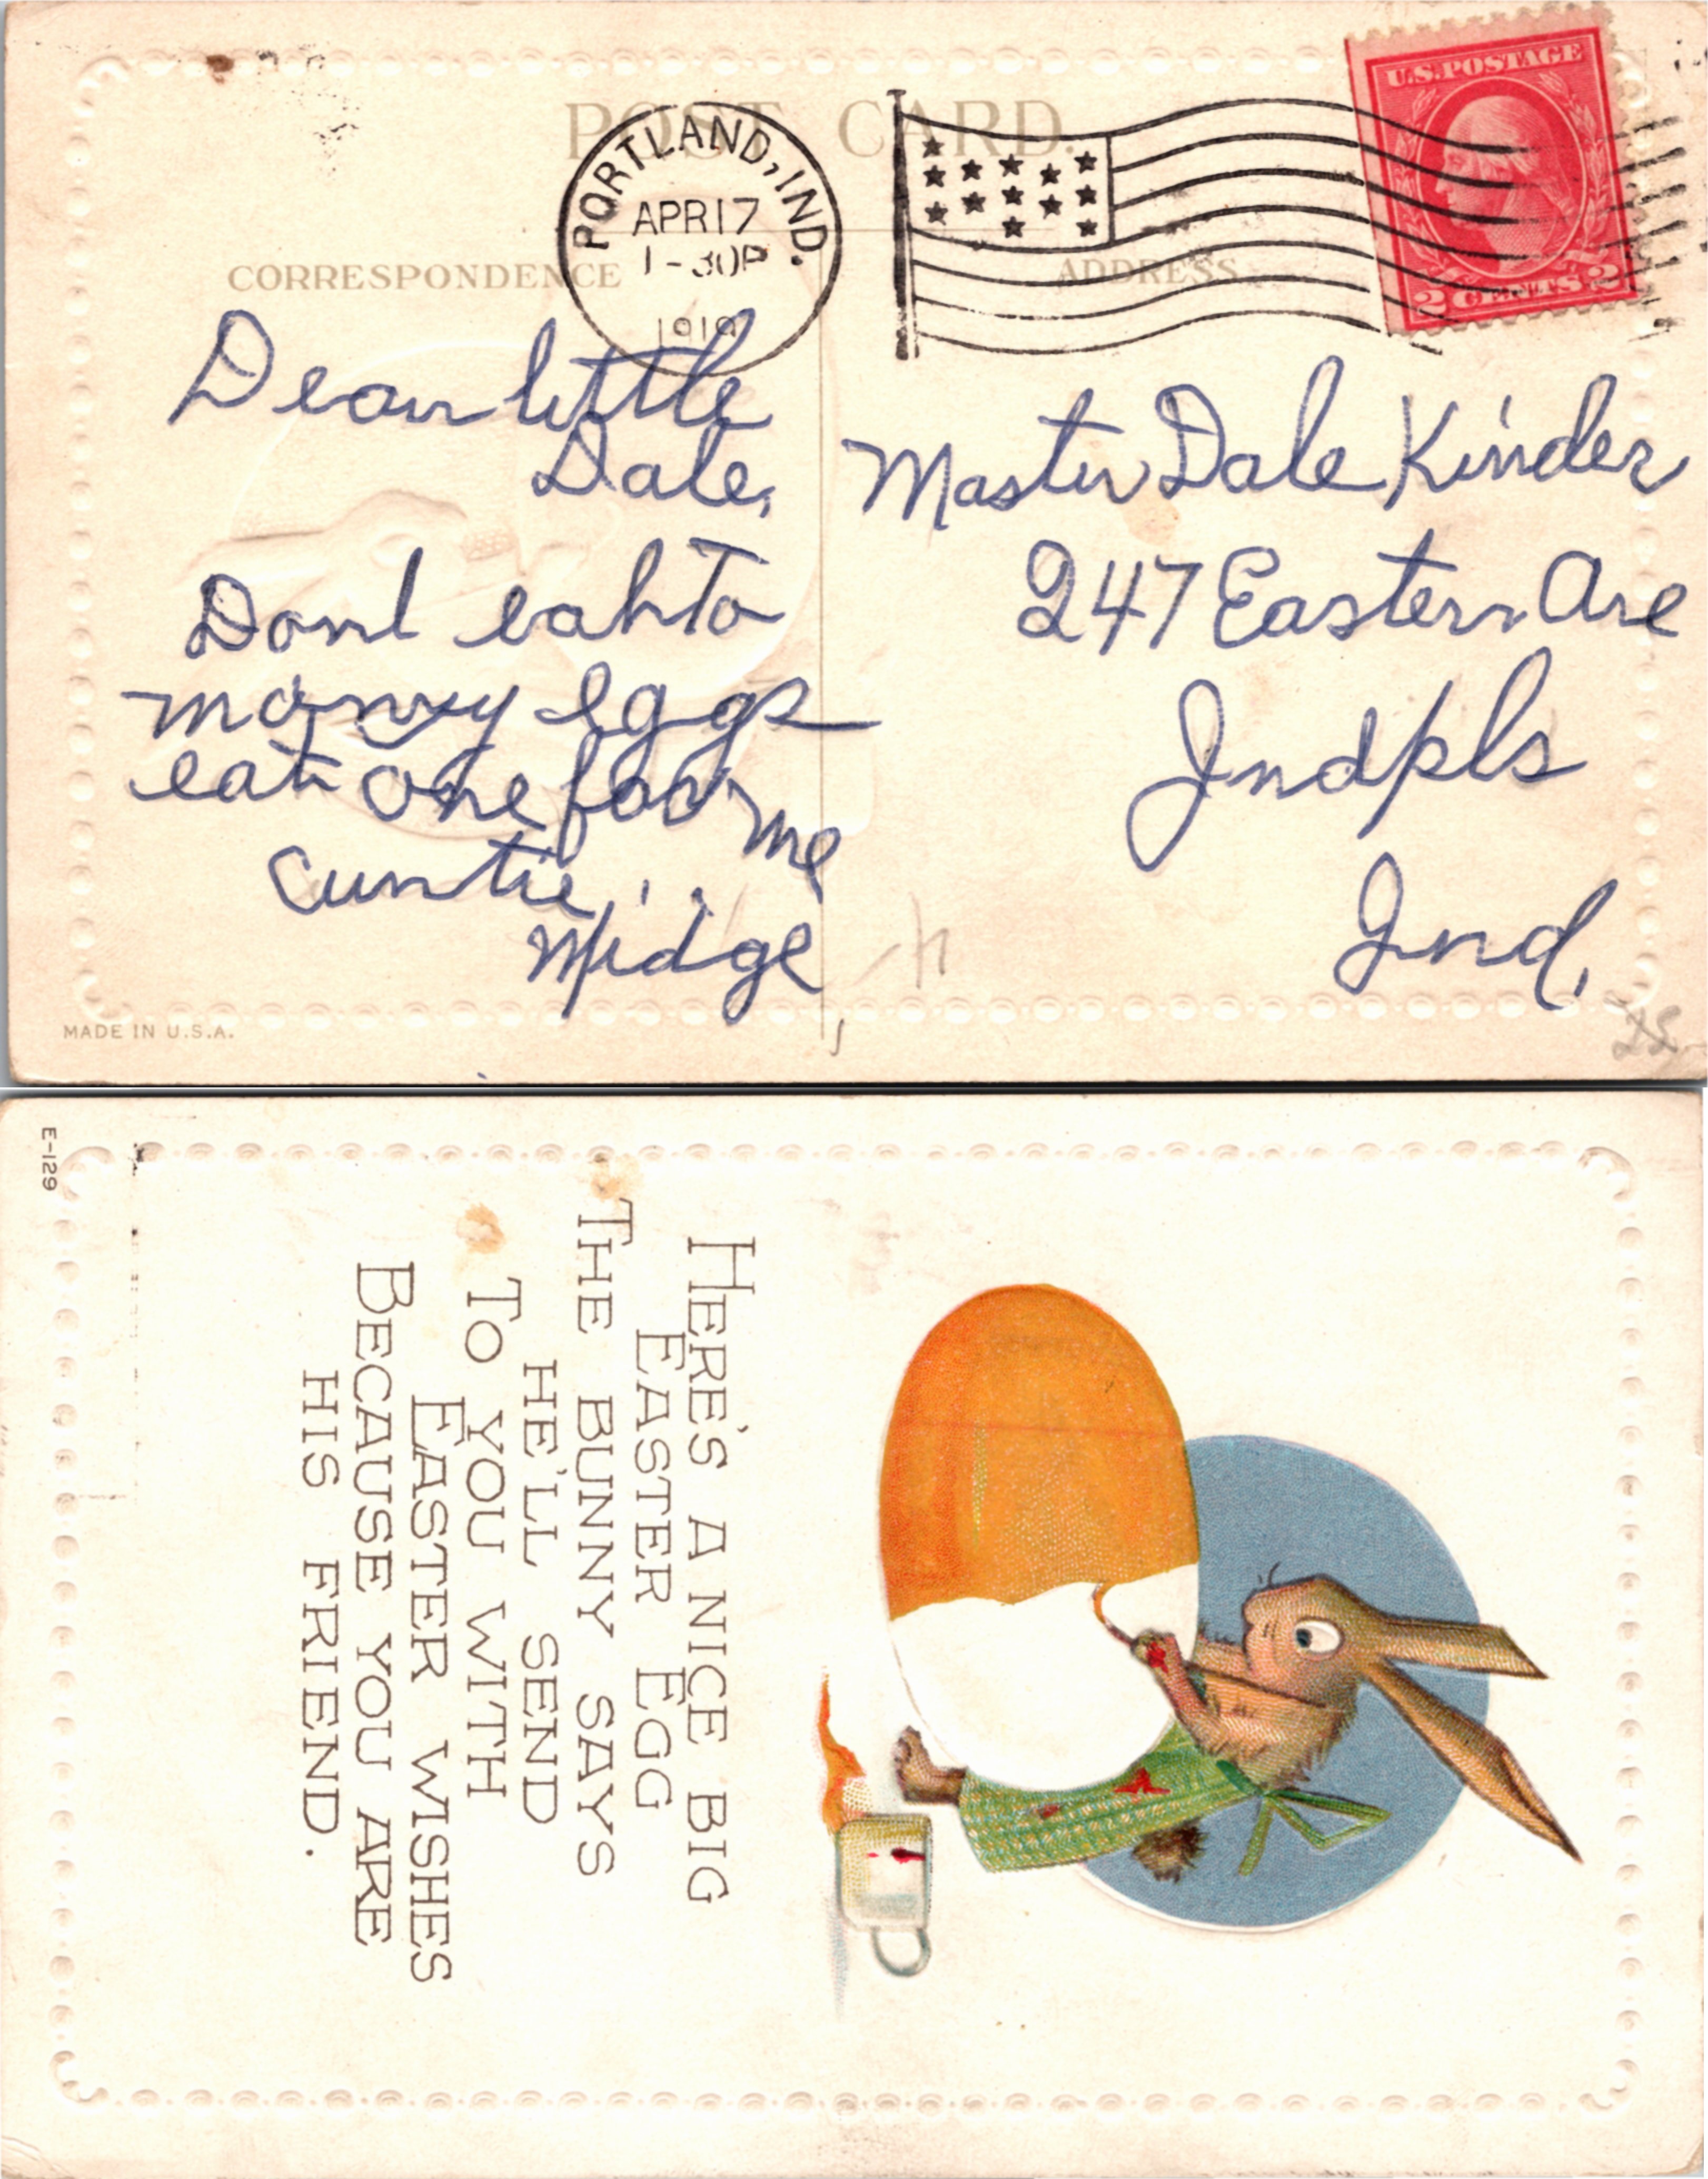 POST CARD.
PORTLAND, IND.
APR 17
1-30P
1919
U.S. POSTAGE
2 CENTS 2
CORRESPONDENCE
ADDRESS
Dear little
Dale,
Dont eat to
many eggs
eat one for me
auntie
Midge
Master Dale Kinder
247 Eastern Ave
Indpls
Ind.
MADE IN U.S.A.
25
E-129
HERE'S A NICE BIG
EASTER EGG
THE BUNNY SAYS
HE'LL SEND
TO YOU WITH
EASTER WISHES
BECAUSE YOU ARE
HIS FRIEND.